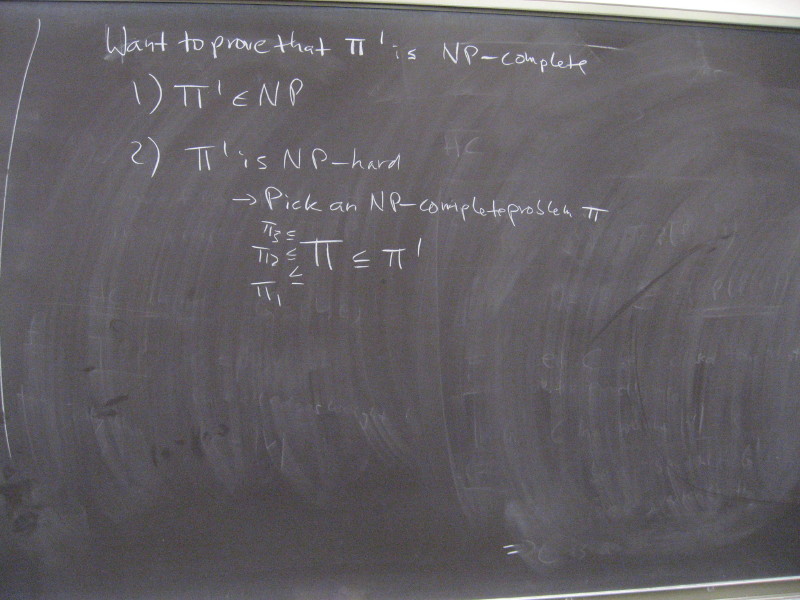 Want to prove that Π' is NP-complete
1) Π' ∈ NP
2) Π' is NP-hard
→ Pick an NP-complete problem Π
Π3 ≤
Π2 ≤ Π ≤ Π'
Π1 ≤
HC